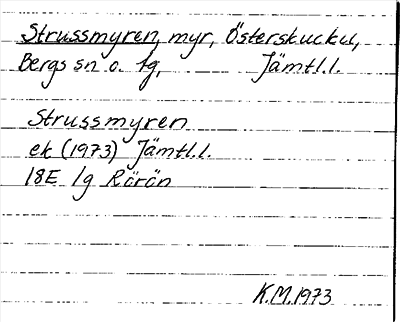 Strussmyren, myr, Österskucku,
Bergs sn o. tg, Jämtl.l.
Strussmyren
ek (1973) Jämtl.l.
18E 1g Rörön
K.M.1973